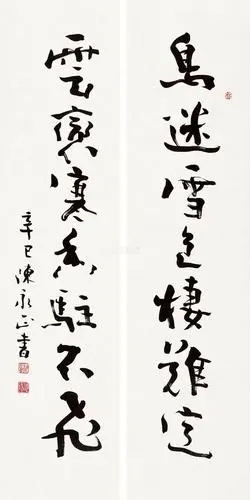 鳥迷雪色棲難定
雲裹寒香駐不飛
辛巳陳永正書